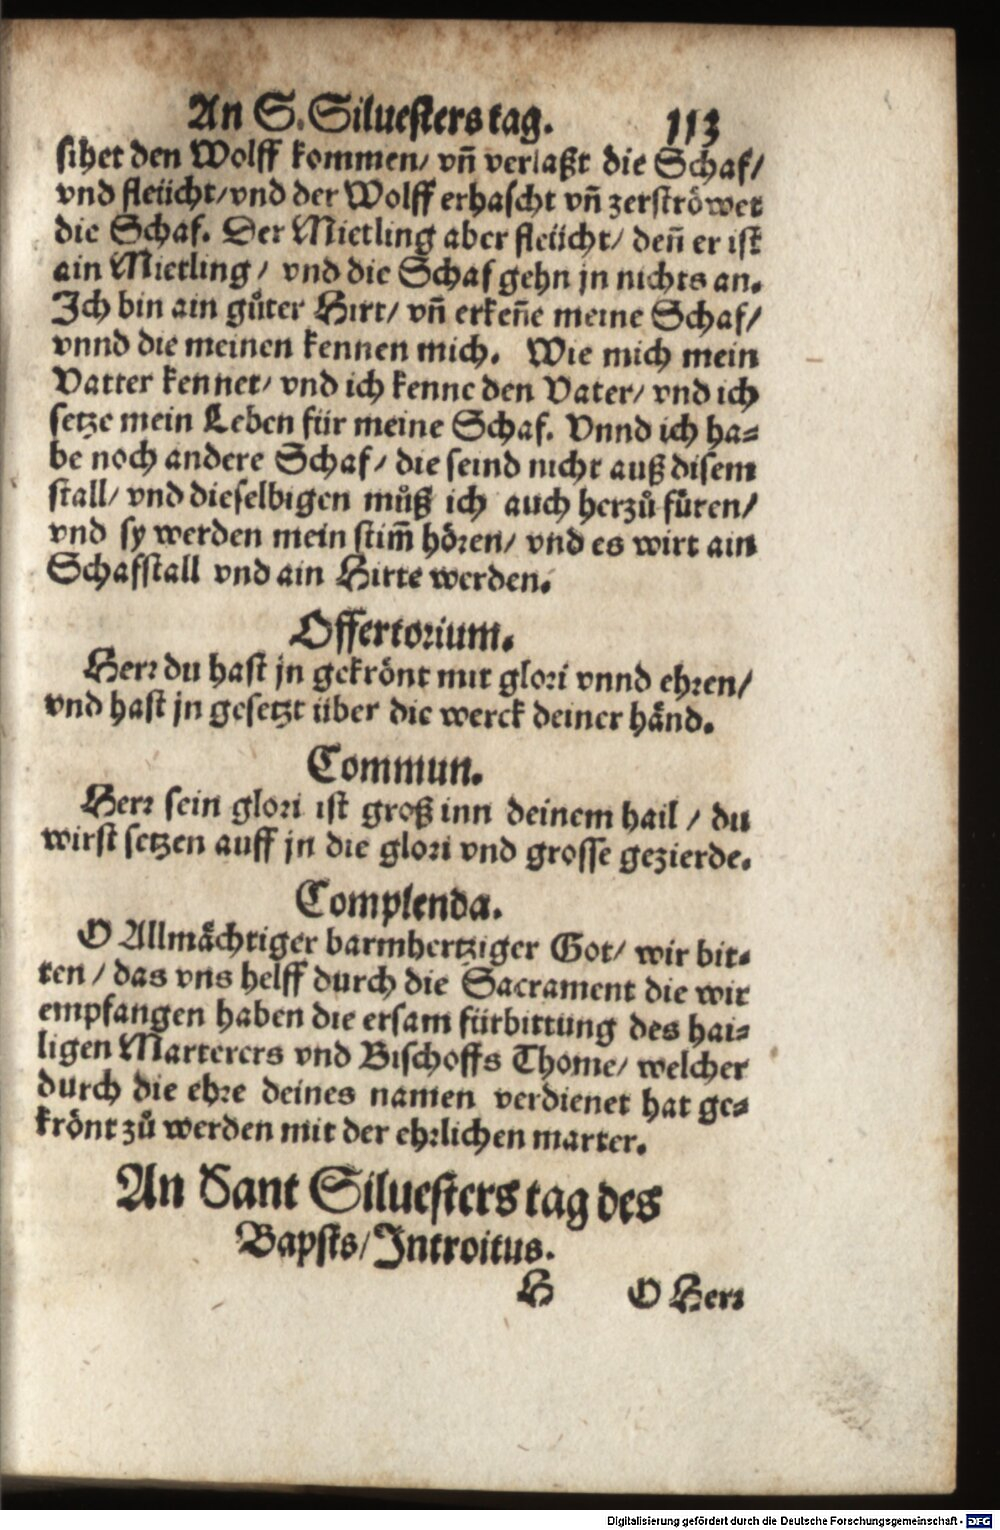 An S. Siluesters tag. 113
sihet den Wolff kommen/ vñ verlaßt die Schaf/
vnd fleücht/ vnd der Wolff erhascht vñ zerströwet
die Schaf. Der Mietling aber fleücht/ deñ er ist
ain Mietling/ vnd die Schaf gehn jn nichts an.
Ich bin ain gůter Hirt/ vñ erkeñe meine Schaf/
vnnd die meinen kennen mich. Wie mich mein
Vatter kennet/ vnd ich kenne den Vater/ vnd ich
setze mein Leben für meine Schaf. Vnnd ich ha⸗
be noch andere Schaf/ die seind nicht auß disem
stall/ vnd dieselbigen můß ich auch herzů füren/
vnd sy werden mein stim̃ hören/ vnd es wirt ain
Schafstall vnd ain Hirte werden.
Offertorium.
Herr du hast jn gekrönt mit glori vnnd ehren/
vnd hast jn gesetzt über die werck deiner händ.
Commun.
Herr sein glori ist groß inn deinem hail/ du
wirst setzen auff jn die glori vnd grosse gezierde.
Complenda.
O Allmächtiger barmhertziger Got/ wir bit⸗
ten/ das vns helff durch die Sacrament die wir
empfangen haben die ersam fürbittung des hai⸗
ligen Marterers vnd Bischoffs Thome/ welcher
durch die ehre deines namen verdienet hat ge⸗
krönt zů werden mit der ehrlichen marter.
An Sant Siluesters tag des
Bapsts/ Introitus.
H O Herr
Digitalisierung gefördert durch die Deutsche Forschungsgemeinschaft - DFG